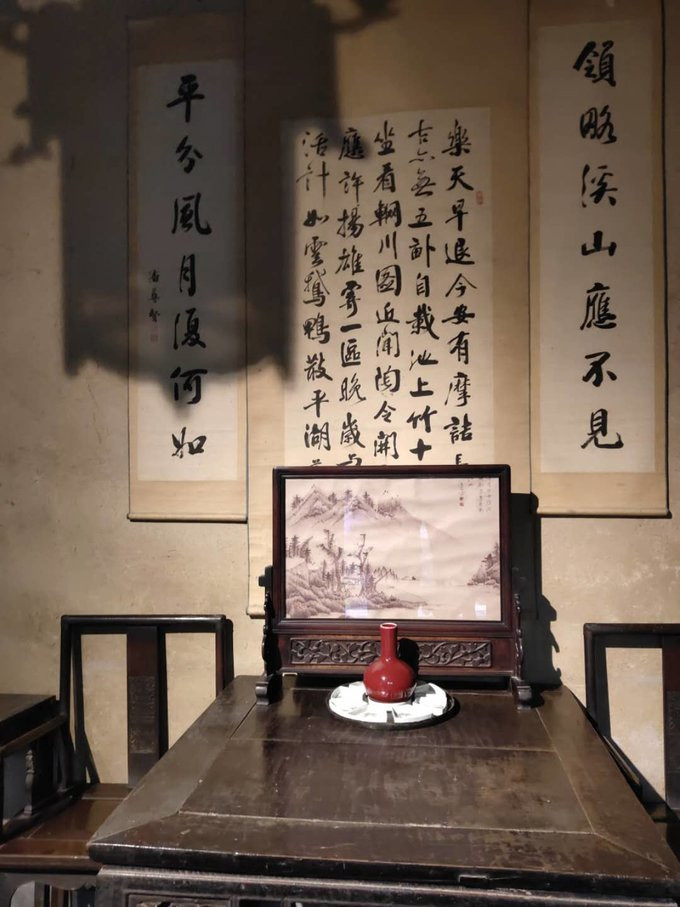 領略溪山應不見
樂天早退今安有摩詰
古亦無五畝自栽池上竹十
坐看輞川圖近聞陶令開
應許揚雄寄一區晚歲
活計如雲鵝鴨散平湖
平分風月復何如